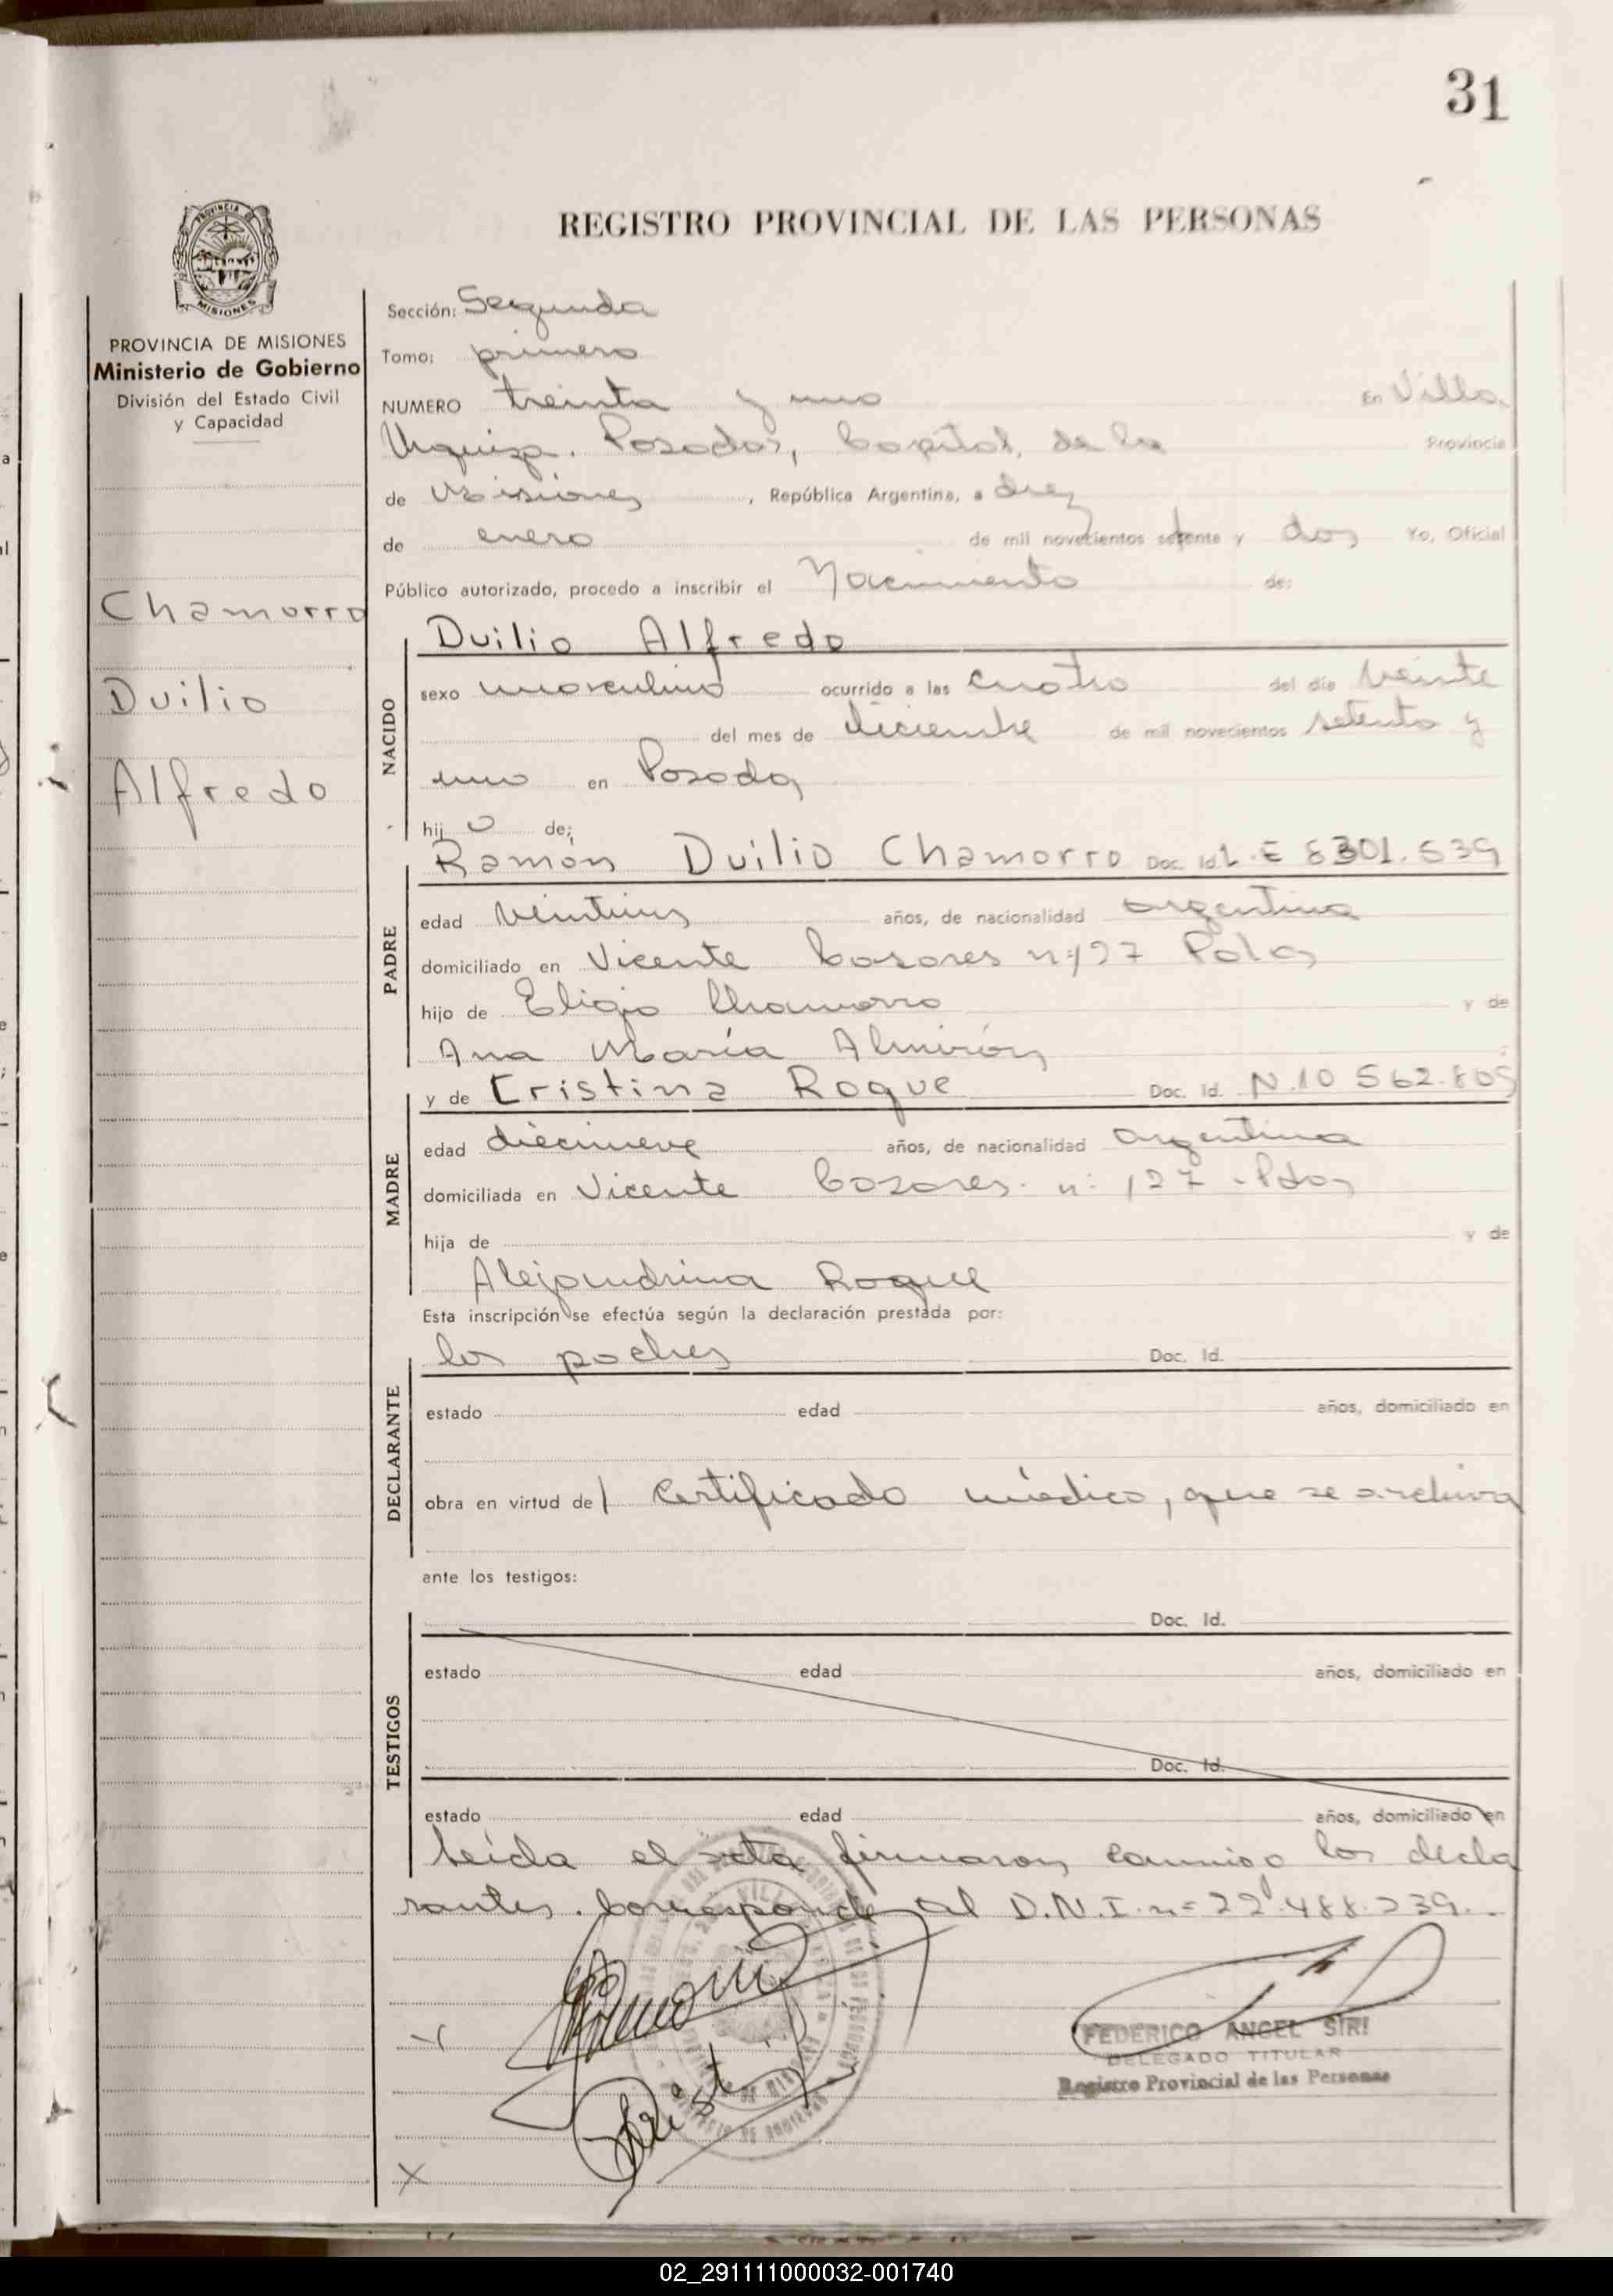 31
REGISTRO PROVINCIAL DE LAS PERSONAS
PROVINCIA DE
MISIONES
PROVINCIA DE MISIONES
Ministerio de Gobierno
División del Estado Civil
y Capacidad
Chamorro
Duilio
Alfredo
Sección: Segunda
Tomo: primero
NUMERO treinta y uno En Villa
Urquiza. Posadas, Capital, de la Provincia
de Misiones, República Argentina, a diez
de enero de mil novecientos setenta y dos Yo, Oficial
Público autorizado, procedo a inscribir el Nacimiento de:
Duilio Alfredo
NACIDO
sexo masculino ocurrido a las cuatro del día veinte
del mes de diciembre de mil novecientos setenta y
uno en Posadas
hij o de;
Ramón Duilio Chamorro Doc. Id. L.E 8301.539
PADRE
edad años, de nacionalidad argentina
domiciliado en Vicente Casares nº127 Pdas
hijo de Eligio Chamorro y de
Ana María Almirón
y de Cristina Roque Doc. Id. N.10 562.805
MADRE
edad diecinueve años, de nacionalidad argentina
domiciliada en Vicente Casares. nº 127 - Pdas
hija de y de
Alejandrina Roque
Esta inscripción se efectúa según la declaración prestada por:
los padres Doc. Id.
DECLARANTE
estado edad años, domiciliado en
obra en virtud de certificado médico, que se archiva
ante los testigos:
Doc. Id.
TESTIGOS
estado edad años, domiciliado en
Doc. Id.
estado edad años, domiciliado en
Leída el acta firmaron conmigo los decla
rantes. Corresponde al D.N.I. nº 22.488.239.-
FEDERICO ANGEL SIRI
DELEGADO TITULAR
Registro Provincial de las Personas
02_291111000032-001740